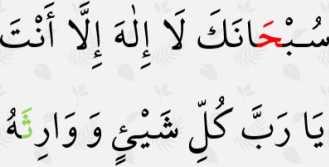 سُبْحَانَكَ لَا إِلٰهَ إِلَّا أَنْتَ
يَا رَبَّ كُلِّ شَيْئٍ وَ وَارِثَهُ